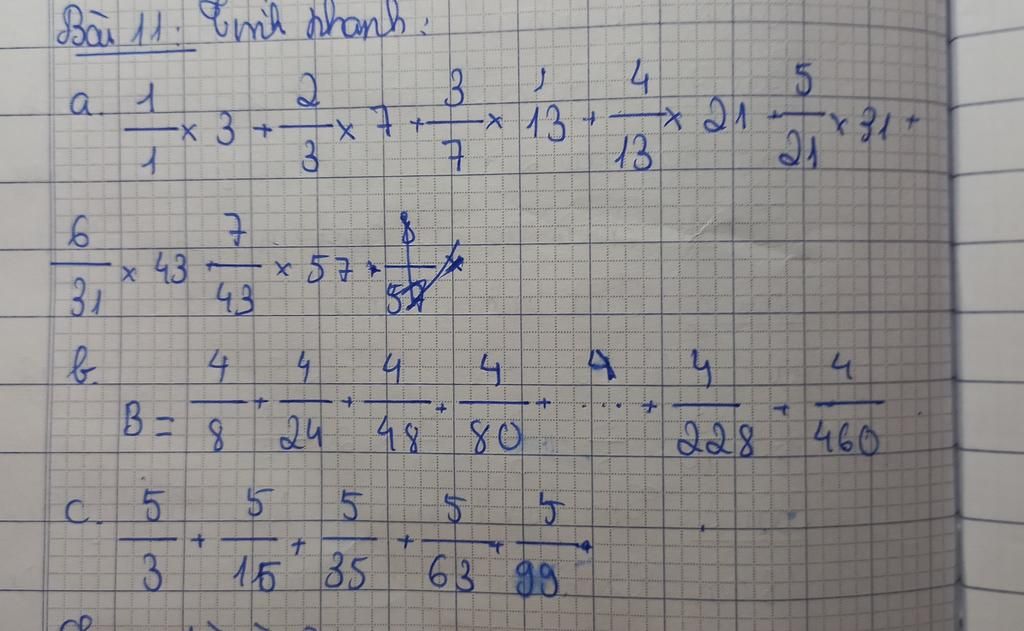 Bài 11: Tính nhanh:
a. 1/1 × 3 + 2/3 × 7 + 3/7 × 13 + 4/13 × 21 + 5/21 × 31 +
6/31 × 43 + 7/43 × 57 +
b. B = 4/8 + 4/24 + 4/48 + 4/80 + .... + 4/228 + 4/460
c. 5/3 + 5/15 + 5/35 + 5/63 + 5/99 +